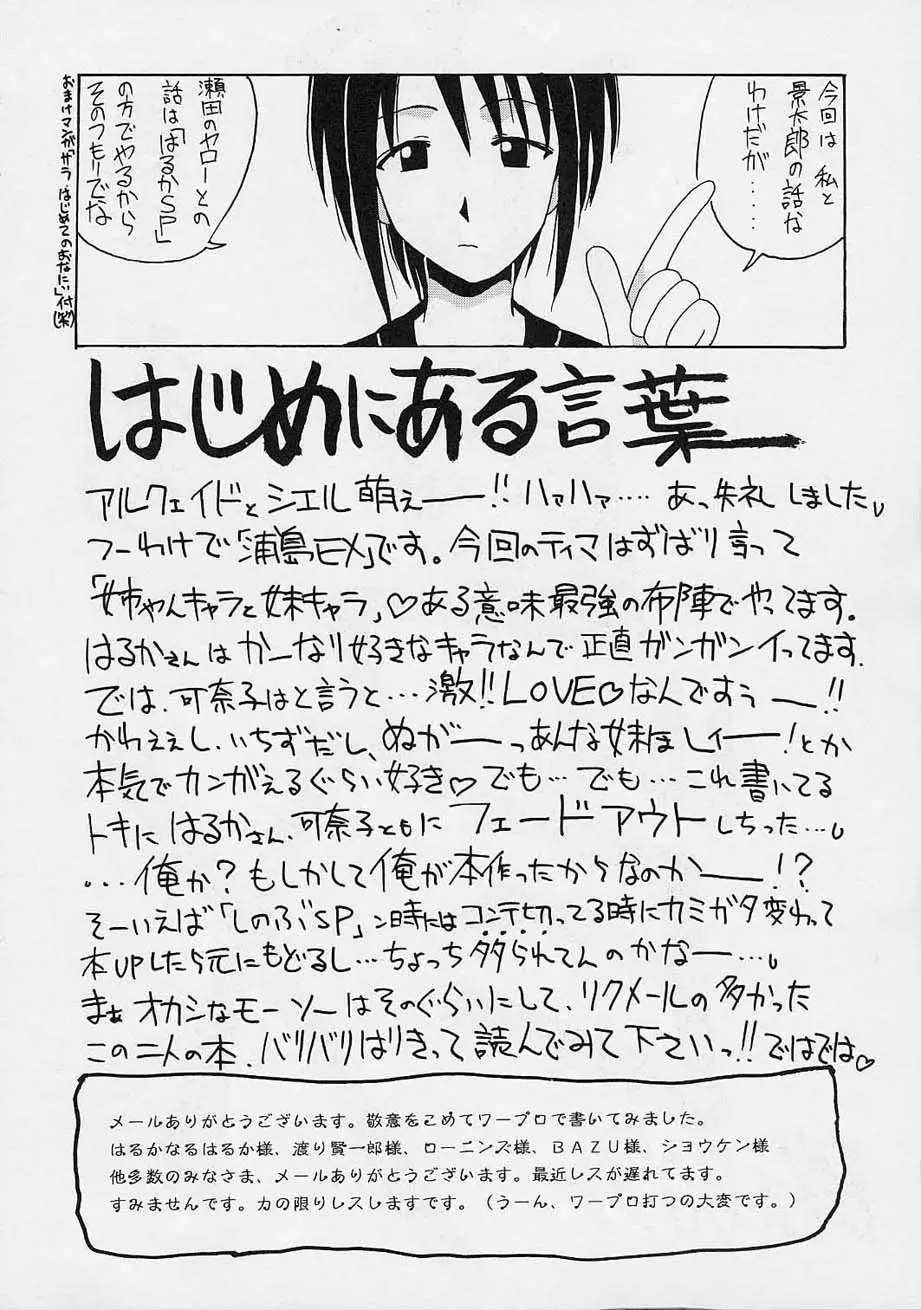 今回は 私と
景太郎の話な
わけだが‥‥
瀬田のヤローとの
話は「はるかSP」
の方でやるから
そのつもりでな
おまけマンガが「カラ はじめてのおなにい」付(笑)
はじめにある言葉
アルクェイドとシエル萌えー!! ハァハァ‥‥ あっ失礼しました
つーわけで「浦島EX」です。今回のティマはずばり言って
「姉ちゃんキャラと妹キャラ」♡ある意味最強の布陣でやってます。
はるかさんはかーなり好きなキャラなんで正直ガンガンイってます.
では、可奈子はと言うと…激!!LOVE♡なんですぅー!!
かわええし、いちずだし、ぬがーっあんな妹ほしィー!とか
本気でカンがえるぐらい好き♡でも…でも…これ書いてる
トキにはるかさん、可奈子ともにフェードアウトしちった…
...俺か?もしかして俺が本作ったからなのかー!?
そーいえば「しのぶSP」ン時にはコンテ切ってる時にカミガタ変わって
本UPしたら元にもどるし…ちょっち祟られてんのかなー…
まぁオカシなモーソーはそのぐらいにして、リクメールの多かった
この二人の本、バリバリはりきって読んでみて下さいっ!!ではでは♡
メールありがとうございます。敬意をこめてワープロで書いてみました。
はるかなるはるか様、渡り賢一郎様、ローニンズ様、BAZU様、ショウケン様
他多数のみなさま、メールありがとうございます。最近レスが遅れてます。
すみませんです。力の限りレスしますです。(うーん、ワープロ打つの大変です。)